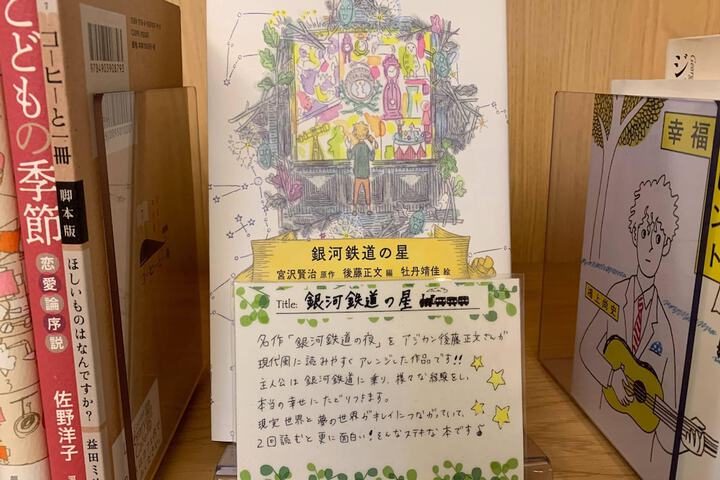 こどもの季節
恋愛論序説
佐野洋子
コーヒーと一冊
脚本版
ほしいものはなんですか?
益田ミリ
銀河鉄道の星
宮沢賢治 原作 後藤正文 編 牡丹靖佳 絵
Title: 銀河鉄道の星
名作「銀河鉄道の夜」を アジカン後藤正文さんが
現代風に読みやすく アレンジした作品です!!
主人公は 銀河鉄道に乗り、様々な経験をし、
本当の幸せに たどりつきます。
現実世界と夢の世界がキレイにつながっていて、
2回読むと更に面白い!そんなステキな本です♪
幸福
鴻上尚史